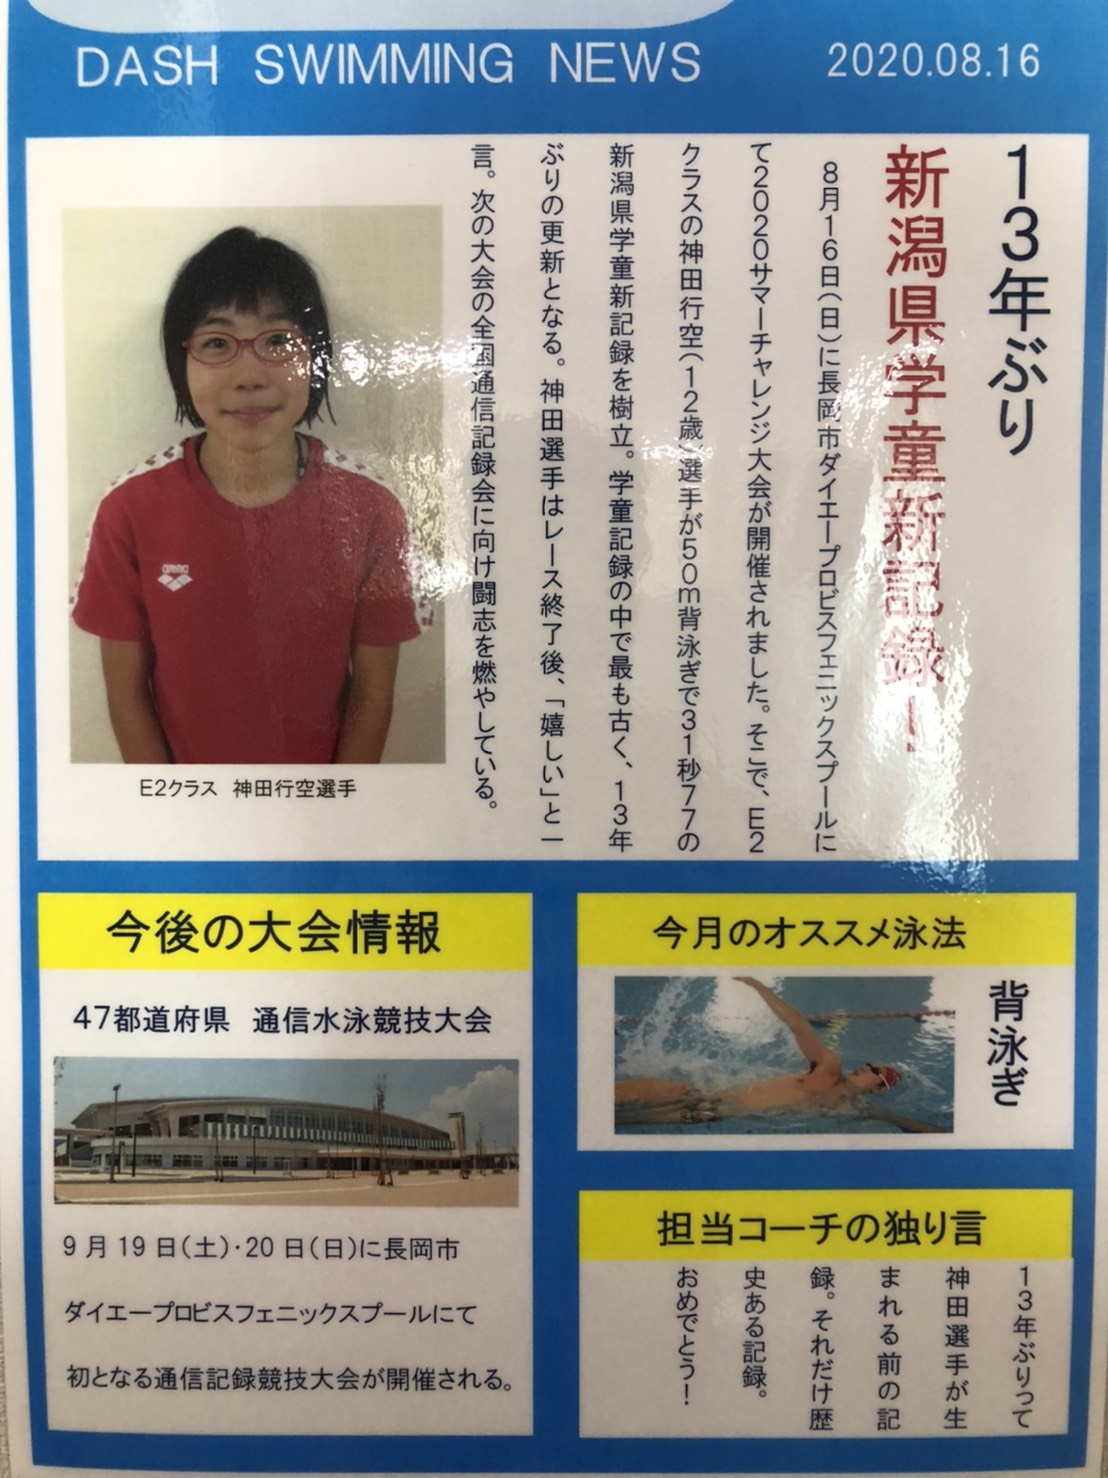 DASH SWIMMING NEWS
2020.08.16
13年ぶり
新潟県学童新記録!
8月16日(日)に長岡市ダイエープロビスフェニックスプールに
て2020サマーチャレンジ大会が開催されました。そこで、E2
クラスの神田行空(12歳)選手が50m背泳ぎで31秒77の
新潟県学童新記録を樹立。学童記録の中で最も古く、13年
ぶりの更新となる。神田選手はレース終了後、「嬉しい」と一
言。次の大会の全国通信記録会に向け闘志を燃やしている。
arena
E2クラス 神田行空選手
今後の大会情報
47都道府県 通信水泳競技大会
9月19日(土)・20日(日)に長岡市
ダイエープロビスフェニックスプールにて
初となる通信記録競技大会が開催される。
今月のオススメ泳法
背泳ぎ
担当コーチの独り言
13年ぶりって
神田選手が生
まれる前の記
録。それだけ歴
史ある記録。
おめでとう!